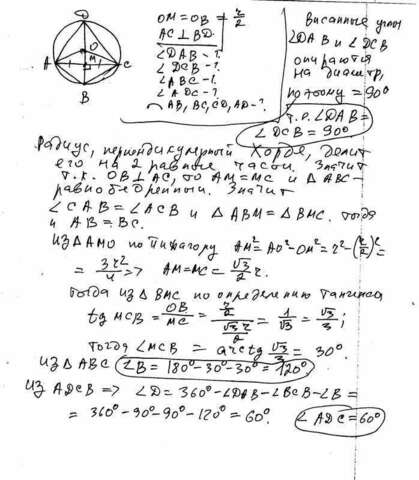 D
O
A
M
C
B
OM = OB = r/2
AC ⊥ BD.
∠DAB - ?
∠DCB - ?
∠ABC - ?
∠ADC - ?
◠ AB, BC, CD, AD - ?
Вписанные углы
∠DAB и ∠DCB
опираются
на диаметр,
поэтому = 90°
т.е. ∠DAB =
∠DCB = 90°.
Радиус, перпендикулярный хорде, делит
его на 2 равные части. Значит
т.к. OB ⊥ AC, то AM = MC и △ABC -
равнобедренный. Значит
∠CAB = ∠ACB и △ABM = △BMC. Тогда
и AB = BC.
Из △AMO по Пифагору AM² = AO² - OM² = r² - (r/2)² =
= 3r²/4 => AM = MC = √3/2 r.
Тогда из △BMC по определению тангенса
tg MCB = OB/MC = (r/2)/(√3r/2) = 1/√3 = √3/3;
Тогда ∠MCB = arctg √3/3 = 30°.
Из △ABC ∠B = 180° - 30° - 30° = 120°
Из ADCB => ∠D = 360° - ∠DAB - ∠BCB - ∠B =
= 360° - 90° - 90° - 120° = 60°. ∠ADC = 60°